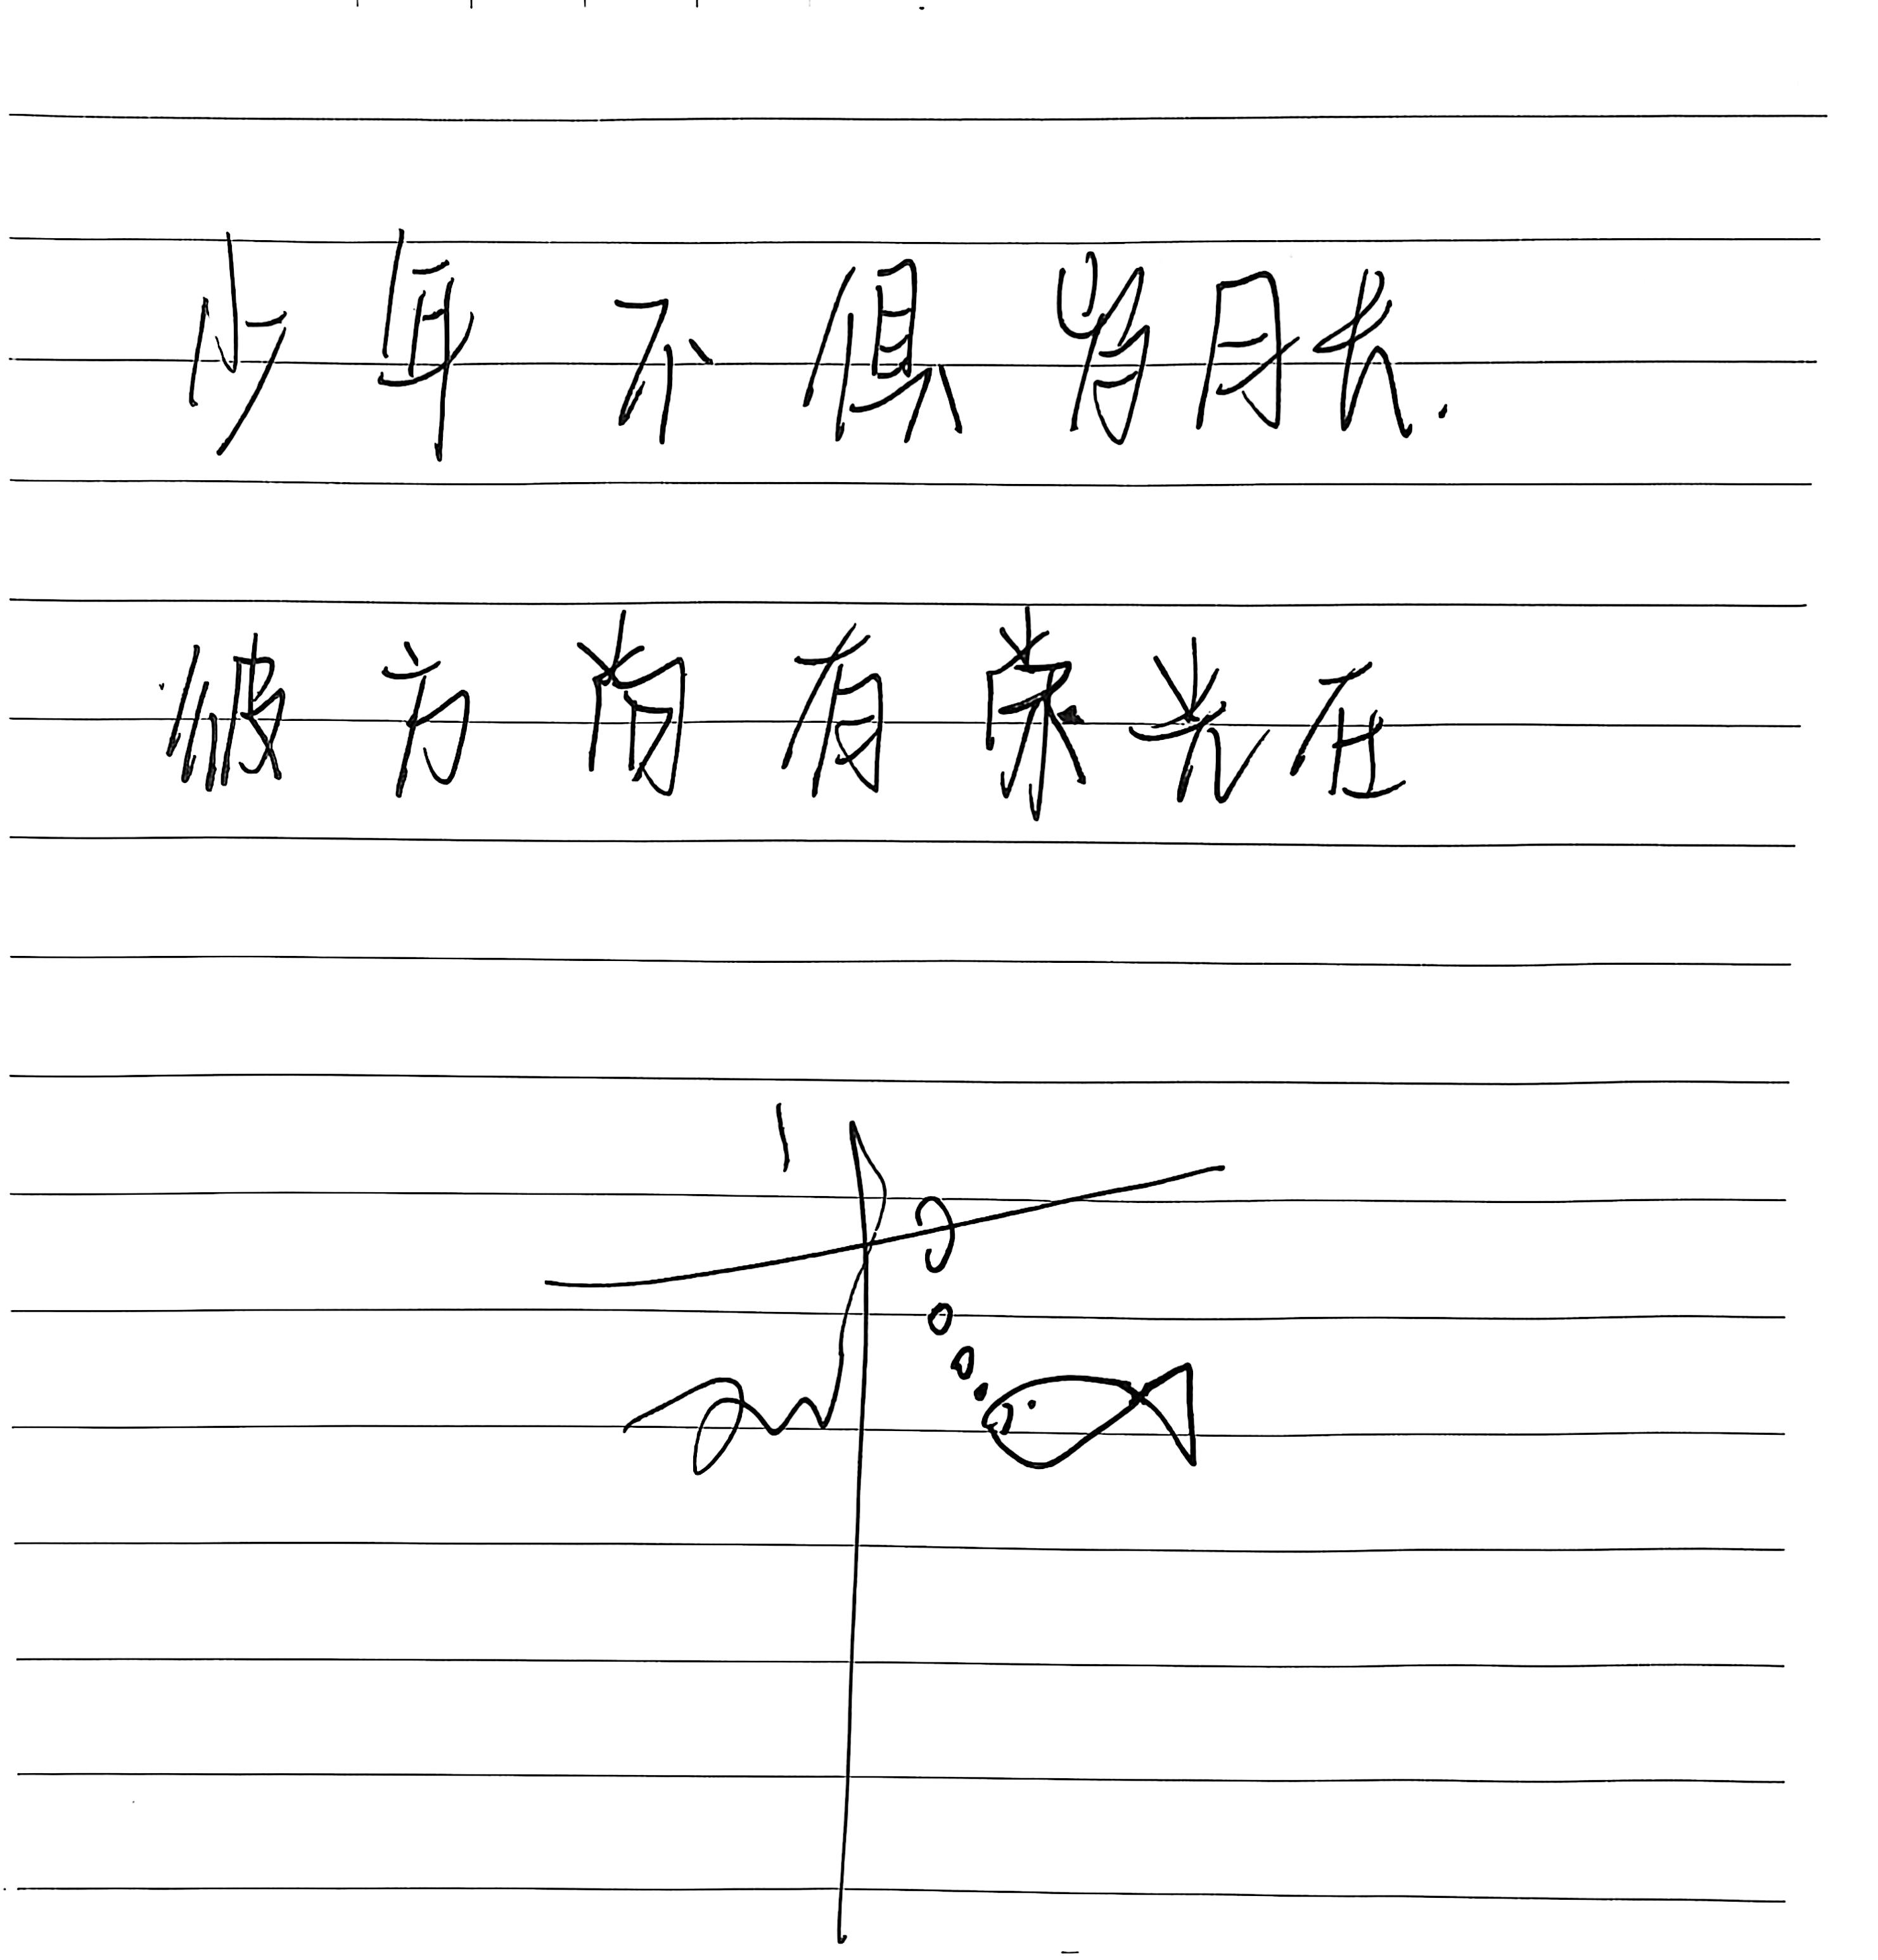 少年不惧岁月长.
彼方尚有荣光在